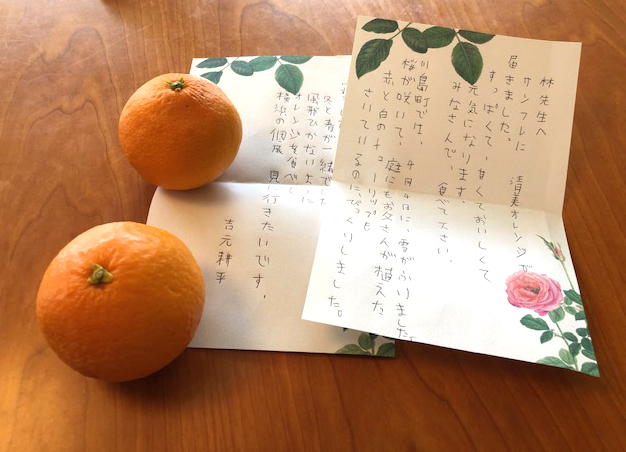 林先生へ
サンフレに 清美オレンジが
届きました。
すっぱくて、甘くておいしくて
元気になります。
みなさんで、食べて下さい。
川島町では、4月4日に、雪がふりました。
桜が咲いて、庭にもお父さんが植えた
赤と白のチューリップも
さいているのに、びっくりしました。
冬と春が一緒でした
風邪ひかないように
オレンジを食べて
横浜の個展 見に行きたいです、
吉元耕平